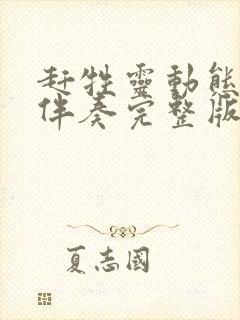 赶牲靈動態
伴奏完整版
夏志國